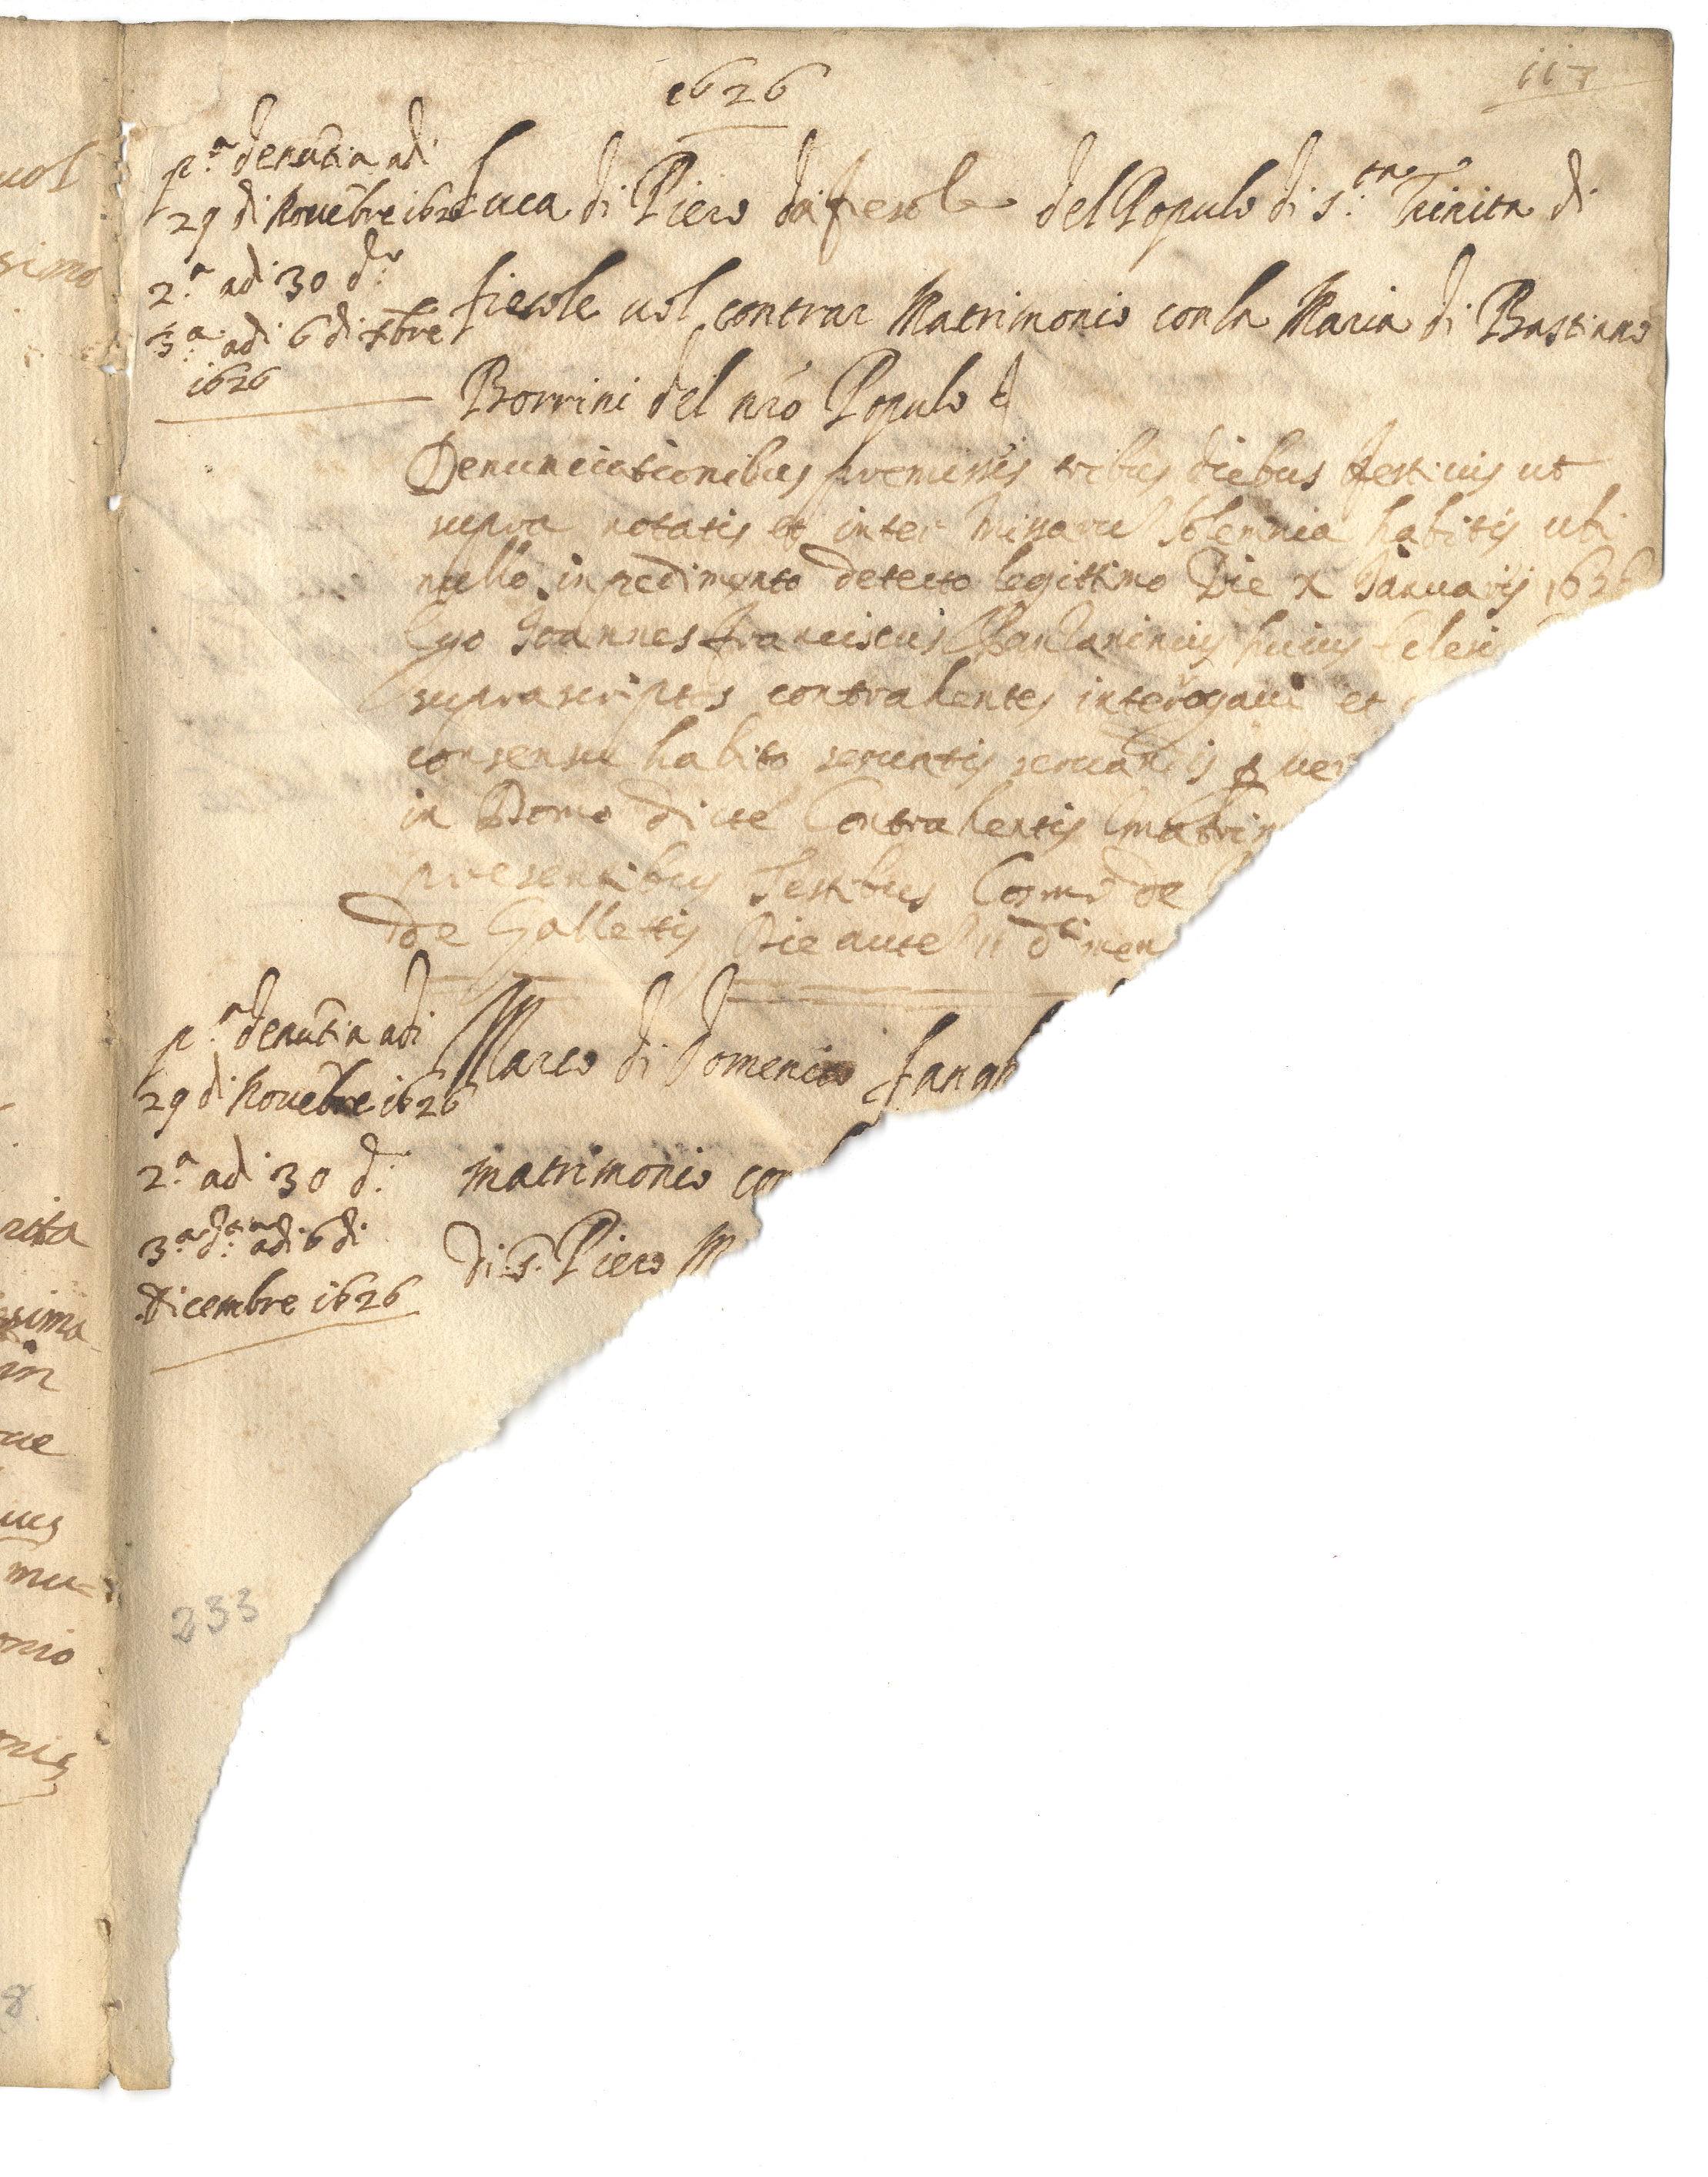 1626
117
p.a denũtia adi
29 di Nouẽbre 1626
2.a adi 30 d.o
3.a adi 6 di xbre
1626
Luca di Piero da fiesole del Popolo di s.ta Trinita di
fiesole uol contrar Matrimonio con la Maria di Bastiano
Borrini del nr̃o Popolo
Denunciationibus premissis tribus diebus festiuis ut
supra notatis et inter missarũ solemnia habitis ubi
nullo inpedimento detecto legittimo Die x Januarij 162
Ego Joannes franciscus huius
suprascriptos contrahentes interogaui et
consensu habito seruatis seruandis p uer
in Domo dicte Contrahentis matrim
presentibus Testibus Cosmo de
de Gallettis Die autẽ 11 d.ti men
p.a denũtia adi
29 di Nouẽbre 1626
2.a adi 30 d.
3.a d.a adi 6 di
dicembre 1626
Marco di Domenico fangh
matrimonio co
di S. Piero M
233
uol
simo
rita
ssima
in
ue
mu=
onio
8